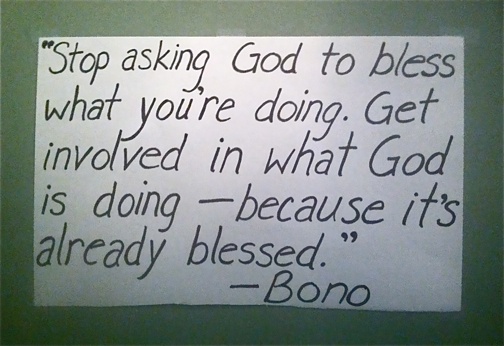 "Stop asking God to bless
what you're doing. Get
involved in what God
is doing —because it's
already blessed."
—Bono